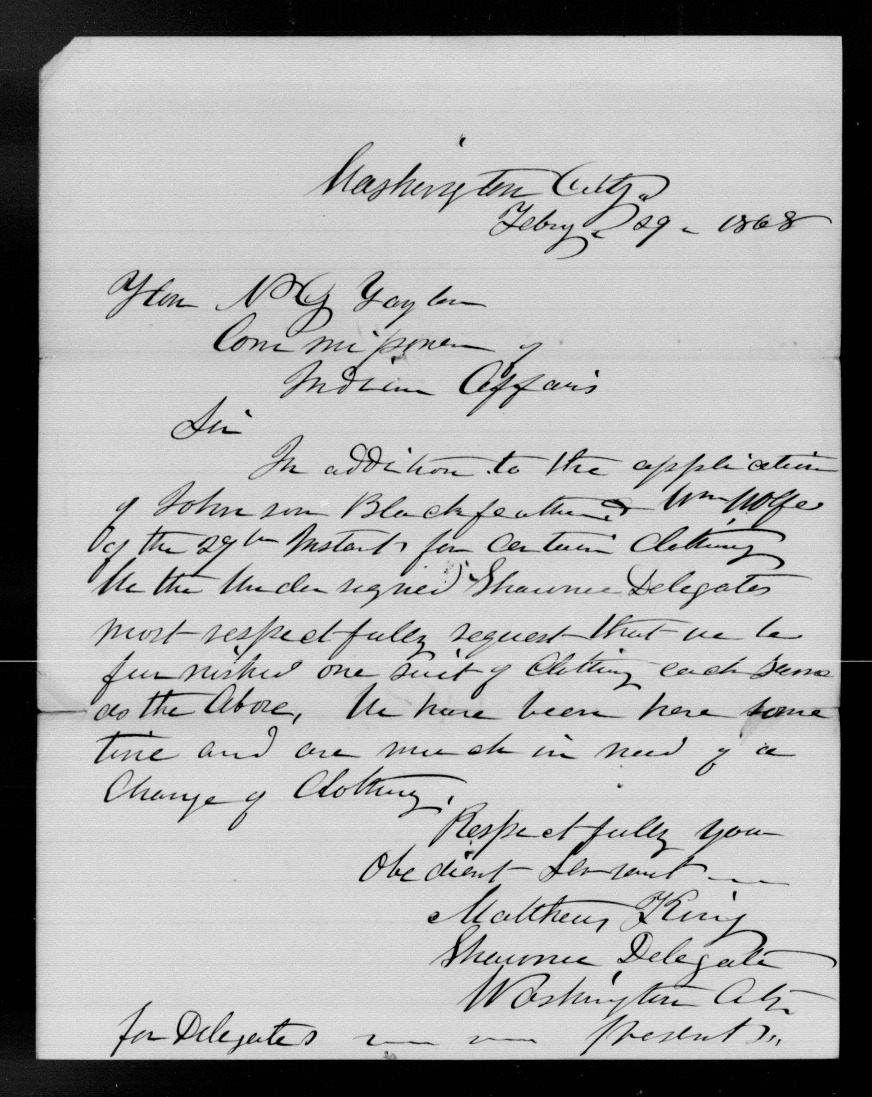 Washington City
Febry 29 - 1868
Hon N G Taylor
Commissioner of
Indian Affairs
Sir
In addition to the application
of Johnson Blackfeather & Wm Wolfe
of the 27th Instant for certain Clothing
We the Undersigned Shawnee Delegates
most respectfully request that we be
furnished one suit of Clothing each same
as the Above, We have been here some
time and are much in need of a
Change of Clothing.
Respectfully your
Obedient Servant
Matthew King
Shawnee Delegate
Washington City
for Delegates present